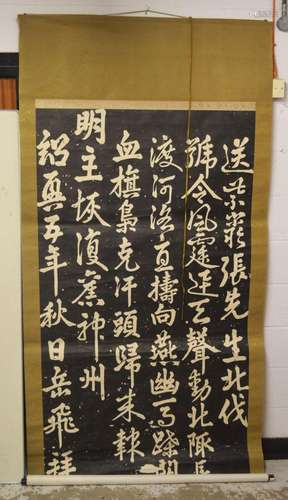 送紫巖張先生北伐
號令風霆迅天聲動北陬長
渡河洛直擣向燕幽馬蹀閼
血旗梟克汗頭歸来報
明主恢復舊神州
紹興五年秋日岳飛拜